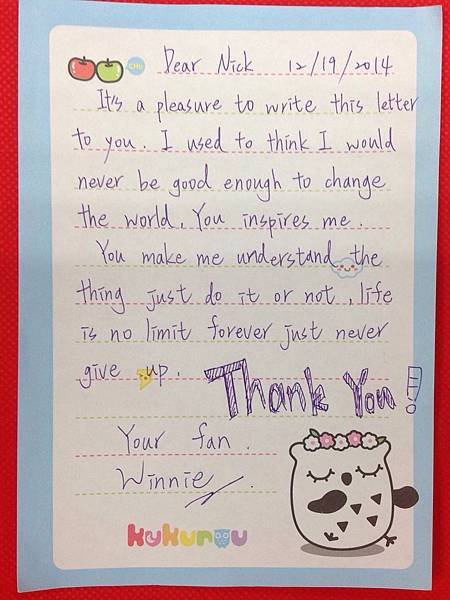 Dear Nick 12/19/2014
It's a pleasure to write this letter
to you. I used to think I would
never be good enough to change
the world. You inspires me.
You make me understand the
thing just do it or not, life
is no limit forever just never
give up.
Thank You!
Your fan.
Winnie
kukurou